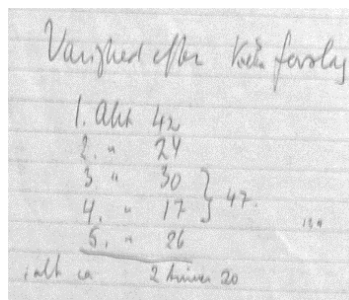 Varighed efter
1. Akt 42
2. " 24
3 " 30
4. " 17 } 47.
5. " 26
ialt ca 2 timer 20